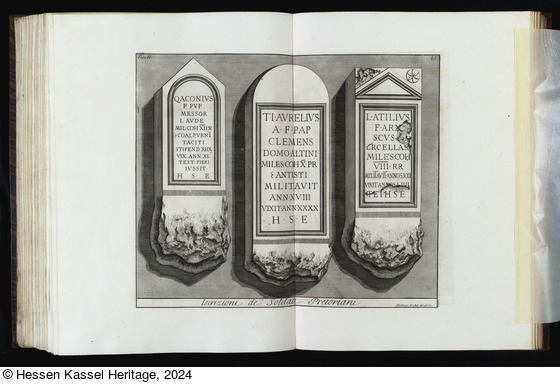 Tom. II.
QACONIVS
F PVP
MESSOR
LAVDE
MIL COH XII PR
TACITI
VIX ANN XL
TEST FIERI
IVSSIT
H S E
TI·AVRELIVS
A·F·PAP
CLEMENS
DOMO·ALTINI
MILES COH X PR
ANTISTI
MILITAVIT
ANN XVIII
VIXIT ANN XXXX
H·S·E
L·ATILIVS
F·ARN
SCVS
MILES COH
VIII·RR
H·S·E
Iscrizioni de' Soldati Pretoriani
© Hessen Kassel Heritage, 2024